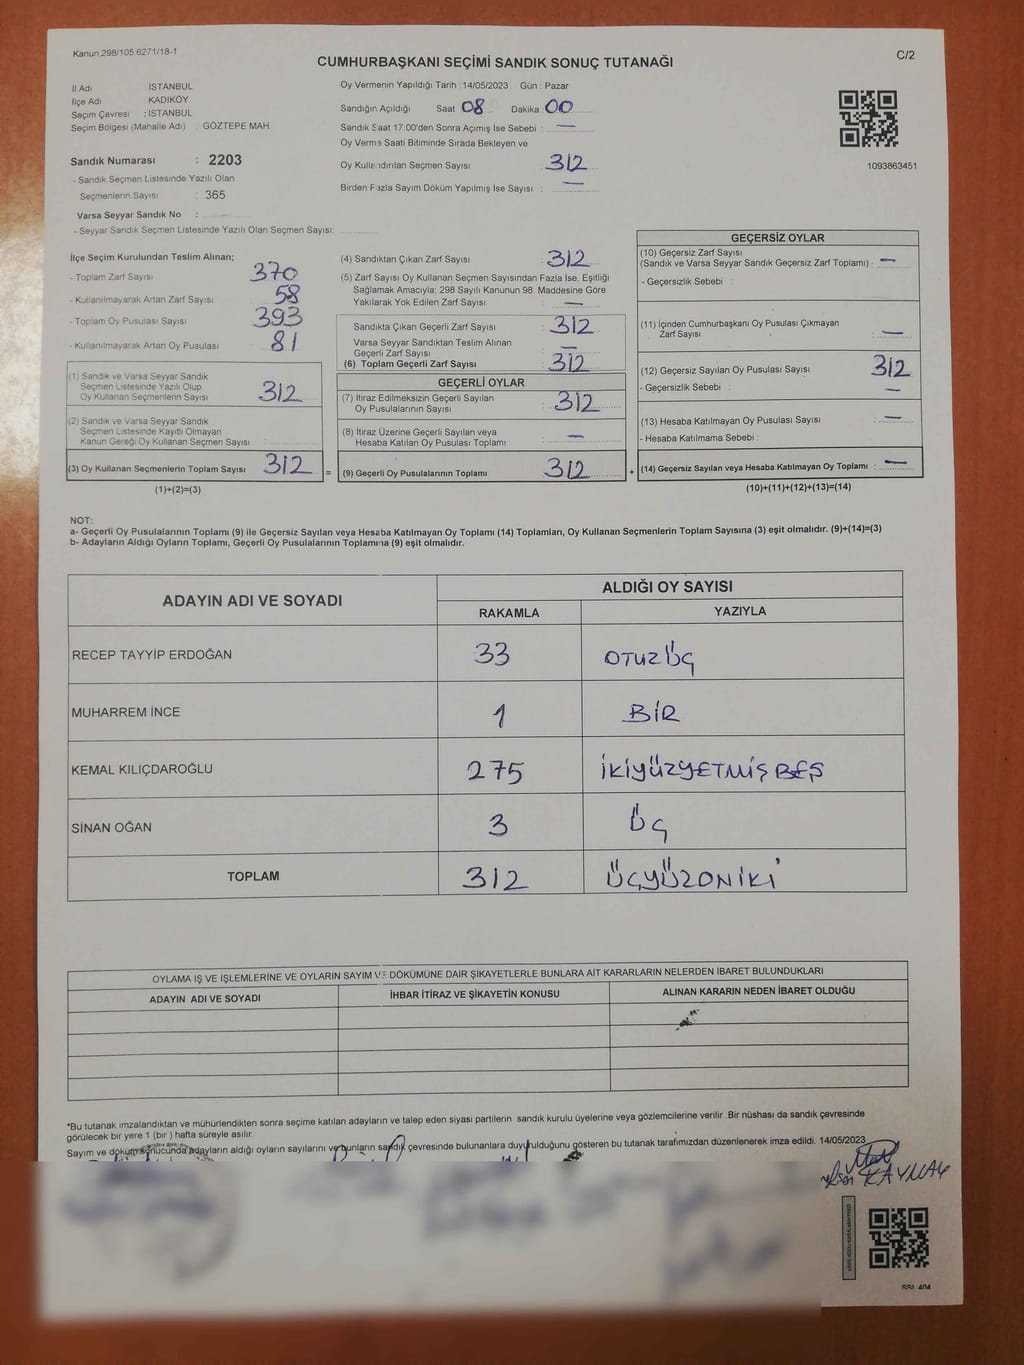 Kanun 298/105 6271/18-1
C/2
CUMHURBAŞKANI SEÇİMİ SANDIK SONUÇ TUTANAĞI
İl Adı İSTANBUL
İlçe Adı KADIKÖY
Seçim Çevresi : İSTANBUL
Seçim Bölgesi (Mahalle Adı) : GÖZTEPE MAH.
Sandık Numarası : 2203
- Sandık Seçmen Listesinde Yazılı Olan
Seçmenlerin Sayısı : 365
Varsa Seyyar Sandık No :
- Seyyar Sandık Seçmen Listesinde Yazılı Olan Seçmen Sayısı:
Oy Vermenin Yapıldığı Tarih : 14/05/2023 Gün : Pazar
Sandığın Açıldığı Saat 08 Dakika 00
Sandık Saat 17:00'den Sonra Açımış İse Sebebi : —
Oy Verme Saati Bitiminde Sırada Bekleyen ve
Oy Kullandırılan Seçmen Sayısı 312
Birden Fazla Sayım Döküm Yapılmış İse Sayısı : —
1093863451
İlçe Seçim Kurulundan Teslim Alınan;
- Toplam Zarf Sayısı 370
- Kullanılmayarak Artan Zarf Sayısı 58
- Toplam Oy Pusulası Sayısı 393
- Kullanılmayarak Artan Oy Pusulası 81
(1) Sandık ve Varsa Seyyar Sandık
Seçmen Listesinde Yazılı Olup
Oy Kullanan Seçmenlerin Sayısı 312
(2) Sandık ve Varsa Seyyar Sandık
Seçmen Listesinde Kayıtlı Olmayan
Kanun Gereği Oy Kullanan Seçmen Sayısı
(3) Oy Kullanan Seçmenlerin Toplam Sayısı 312 =
(1)+(2)=(3)
(4) Sandıktan Çıkan Zarf Sayısı 312
(5) Zarf Sayısı Oy Kullanan Seçmen Sayısından Fazla İse, Eşitliği
Sağlamak Amacıyla; 298 Sayılı Kanunun 98. Maddesine Göre
Yakılarak Yok Edilen Zarf Sayısı : —
Sandıkta Çıkan Geçerli Zarf Sayısı 312
Varsa Seyyar Sandıktan Teslim Alınan
Geçerli Zarf Sayısı —
(6) Toplam Geçerli Zarf Sayısı 312
GEÇERLİ OYLAR
(7) İtiraz Edilmeksizin Geçerli Sayılan
Oy Pusulalarının Sayısı 312
(8) İtiraz Üzerine Geçerli Sayılan veya
Hesaba Katılan Oy Pusulası Toplamı —
(9) Geçerli Oy Pusulalarının Toplamı 312 +
GEÇERSİZ OYLAR
(10) Geçersiz Zarf Sayısı
(Sandık ve Varsa Seyyar Sandık Geçersiz Zarf Toplamı) : —
- Geçersizlik Sebebi :
(11) İçinden Cumhurbaşkanı Oy Pusulası Çıkmayan
Zarf Sayısı : —
(12) Geçersiz Sayılan Oy Pusulası Sayısı 312
- Geçersizlik Sebebi : —
(13) Hesaba Katılmayan Oy Pusulası Sayısı : —
- Hesaba Katılmama Sebebi :
(14) Geçersiz Sayılan veya Hesaba Katılmayan Oy Toplamı : —
(10)+(11)+(12)+(13)=(14)
NOT:
a- Geçerli Oy Pusulalarının Toplamı (9) ile Geçersiz Sayılan veya Hesaba Katılmayan Oy Toplamı (14) Toplamları, Oy Kullanan Seçmenlerin Toplam Sayısına (3) eşit olmalıdır. (9)+(14)=(3)
b- Adayların Aldığı Oyların Toplamı, Geçerli Oy Pusulalarının Toplamına (9) eşit olmalıdır.
ADAYIN ADI VE SOYADI
ALDIĞI OY SAYISI
RAKAMLA YAZIYLA
RECEP TAYYİP ERDOĞAN 33 OTUZÜÇ
MUHARREM İNCE 1 BİR
KEMAL KILIÇDAROĞLU 275 İKİYÜZYETMİŞBEŞ
SİNAN OĞAN 3 ÜÇ
TOPLAM 312 ÜÇYÜZONİKİ
OYLAMA İŞ VE İŞLEMLERİNE VE OYLARIN SAYIM VE DÖKÜMÜNE DAİR ŞİKAYETLERLE BUNLARA AİT KARARLARIN NELERDEN İBARET BULUNDUKLARI
ADAYIN ADI VE SOYADI İHBAR İTİRAZ VE ŞİKAYETİN KONUSU ALINAN KARARIN NEDEN İBARET OLDUĞU
*Bu tutanak imzalandıktan ve mühürlendikten sonra seçime katılan adayların ve talep eden siyasi partilerin sandık kurulu üyelerine veya gözlemcilerine verilir .Bir nüshası da sandık çevresinde
görülecek bir yere 1 (bir ) hafta süreyle asılır.
Sayım ve döküm sonucunda adayların aldığı oyların sayılarını ve bunların sandık çevresinde bulunanlara duyurulduğunu gösteren bu tutanak tarafımızdan düzenlenerek imza edildi. 14/05/2023
KAYNAK